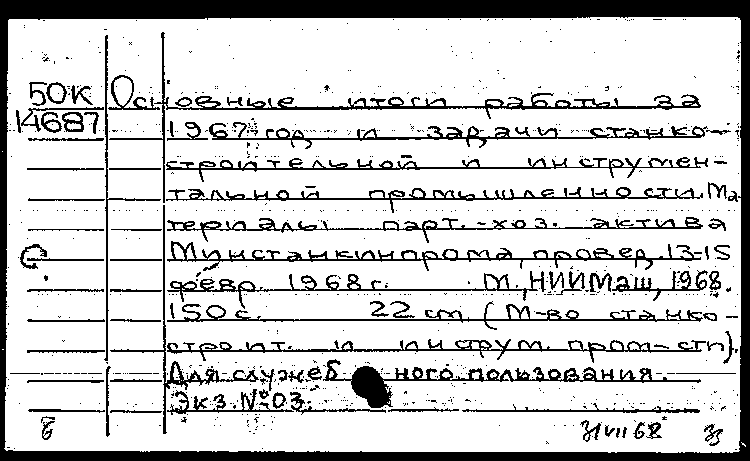 50К
14687
Основные итоги работы за
1967 год и задачи станко-
строительной и инструмен-
тальной промышленности. Ма
териалы парт.-хоз. актива
Минстанкинпрома, провед. 13-15
февр. 1968 г. М., НИИМаш, 1968.
150 с. 22 см. (М-во станко-
строит. и инструм. пром-сти).
Для служебного пользования.
Экз. № 03.
31 VII 68